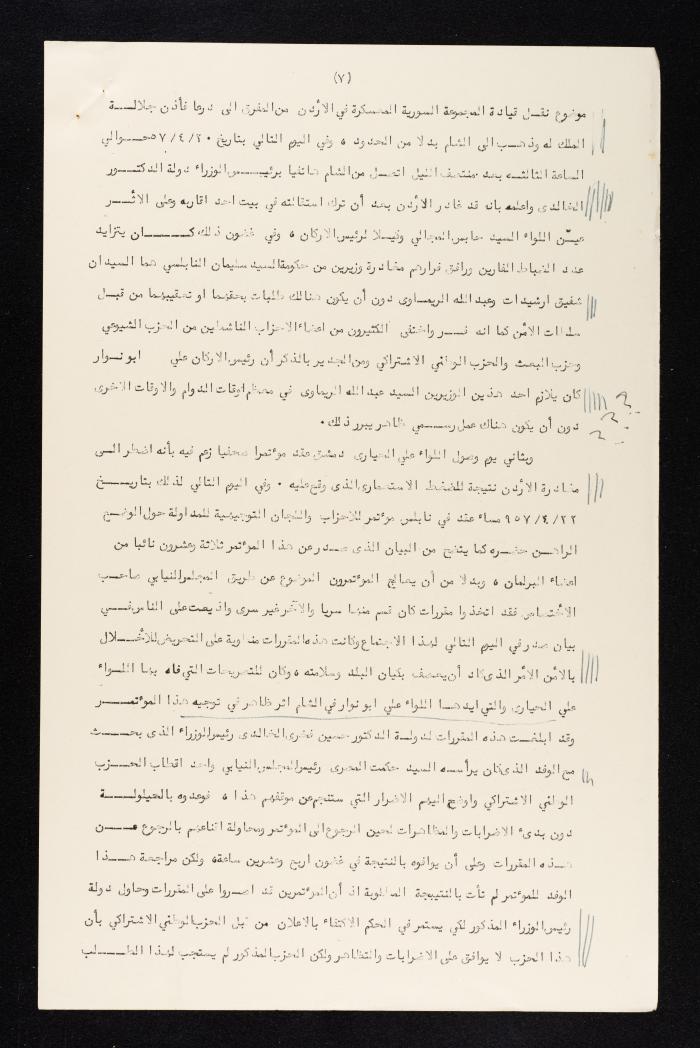 (٧)
موضوع نقل قيادة المجموعة السورية المعسكرة في الأردن من المفرق الى درعا فأذن جلالة
الملك له وذهب الى الشام بدلا من الحدود ه وفي اليوم التالي بتاريخ ٥٧/٤/٢٠ حوالي
الساعة الثالثه بعد منتصف الليل اتصل من الشام هاتفيا برئيس الوزراء دولة الدكتور
الخالدى واعلمه بانه قد غادر الأردن بعد أن ترك استقالته في بيت احد اقاربه وعلى الأثر
عين اللواء السيد حابس المجالي وكيلا لرئيس الاركان ه وفي غضون ذلك كان يتزايد
عدد الضباط الفارين ورافق فرارهم مغادرة وزيرين من حكومة السيد سليمان النابلسي هما السيدان
شفيق ارشيدات وعبد الله الريماوى دون أن يكون هنالك طلبات بحقهما او تعقيبهما من قبل
سلطات الأمن كما انه فر واختفى الكثيرون من اعضاء الاحزاب الناشطين من الحزب الشيوعي
وحزب البعث والحزب الوطني الاشتراكي ومن الجدير بالذكر أن رئيس الاركان علي ابو نوار
كان يلازم احد هذين الوزيرين السيد عبد الله الريماوى في معظم اوقات الدوام والاوقات الاخرى
دون أن يكون هناك عمل رسمي ظاهر يبرر ذلك .
وبثاني يوم وصول اللواء علي الحيارى دمشق عقد مؤتمرا صحفيا زعم فيه بأنه اضطر الى
مغادرة الأردن نتيجة للضغط الاستعمارى الذى وقع عليه . وفي اليوم التالي لذلك بتاريخ
٩٥٧/٤/٢٢ مساء عقد في نابلس مؤتمر للاحزاب واللجان التوجيهية للمداولة حول الوضع
الراهن حضره كما يتضح من البيان الذى صدر عن هذا المؤتمر ثلاثة وعشرون نائبا من
اعضاء البرلمان ه وبدلا من أن يعالج المؤتمرون الموضوع عن طريق المجلس النيابي صاحب
الاختصاص فقد اتخذوا مقررات كان قسم منها سريا والآخر غير سرى واذيعت على الناس في
بيان صدر في اليوم التالي لهذا الاجتماع وكانت هذه المقررات منطوية على التحريض للأخلال
بالأمن الأمر الذى كاد أن يعصف بكيان البلد وسلامته ه وكان للتصريحات التي فاه بها اللواء
علي الحيارى والتي ايدها اللواء علي ابو نوار في الشام اثر ظاهر في توجيه هذا المؤتمر
وقد ابلغت هذه المقررات لدولة الدكتور حسين فخرى الخالدى رئيس الوزراء الذى بحث
مع الوفد الذى كان يرأسه السيد حكمت المصرى رئيس المجلس النيابي واحد اقطاب الحزب
الوطني الاشتراكي واوضح اليهم الاضرار التي ستنجم عن موقفهم هذا ه فوعدوه بالحيلولة
دون بدئ الاضرابات والمظاهرات لحين الرجوع الى المؤتمر ومحاولة اقناعهم بالرجوع عن
هذه المقررات وعلى أن يوافوه بالنتيجة في غضون اربع وعشرين ساعة ولكن مراجعة هذا
الوفد للمؤتمر لم تأت بالنتيجة المطلوبة اذ أن المؤتمرين قد اصروا على المقررات وحاول دولة
رئيس الوزراء المذكور لكي يستمر في الحكم الاكتفاء بالاعلان من قبل الحزب الوطني الاشتراكي بأن
هذا الحزب لا يوافق على الاضرابات والتظاهر ولكن الحزب المذكور لم يستجب لهذا الطلب